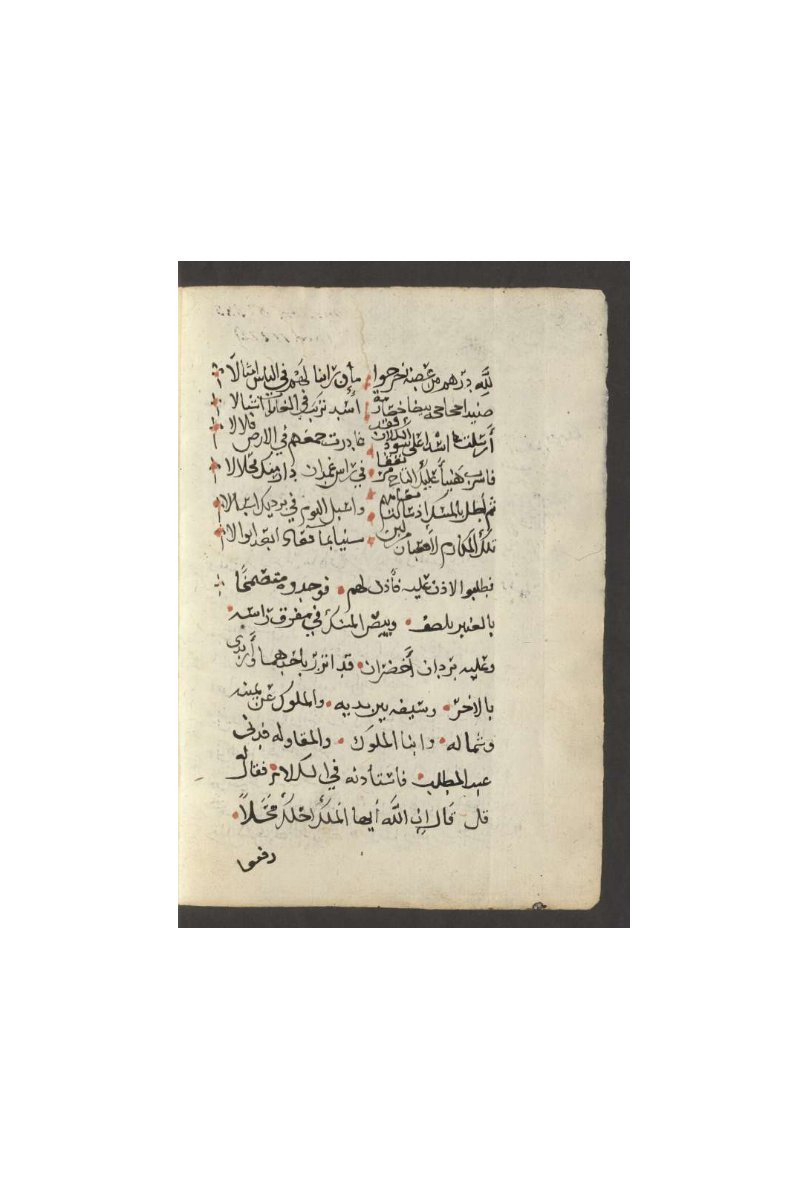 لله درهم من عصبة خرجوا ما إن راينا لهم في الناس امثالا
صيدا جحاجحة بيضا خضارمة أسد تربب في الغابات اشبالا
أرسلت اسدا على سود الكلاب فقد غادرت جمعهم في الارض فلالا
فاشرب هنيأ عليك التاج مرتفقا في راس غمدان دار منك محلالا
ثم اطل بالمسك اذ شالت نعامتهم واسبل اليوم في برديك اسبالا
تلك المكارم لا قعبان من لبن سيبا بما فعادا بعد ابوالا
فطلبوا الاذن عليه فأذن لهم فوجدوه متضمخا
بالعنبر يلصف وبيض المسك في مفرق راسه
وعليه بردان أخضران قد اتزر باحدهما وأرتدى
بالاخر وسيفه بين يديه والملوك عن يمينه
وشماله وابنا الملوك والمقاوله فدنى
عبد المطلب فاستأذنه في الكلام فقال له
قل قال إن الله أيها الملك احلك محلا
رفيعا